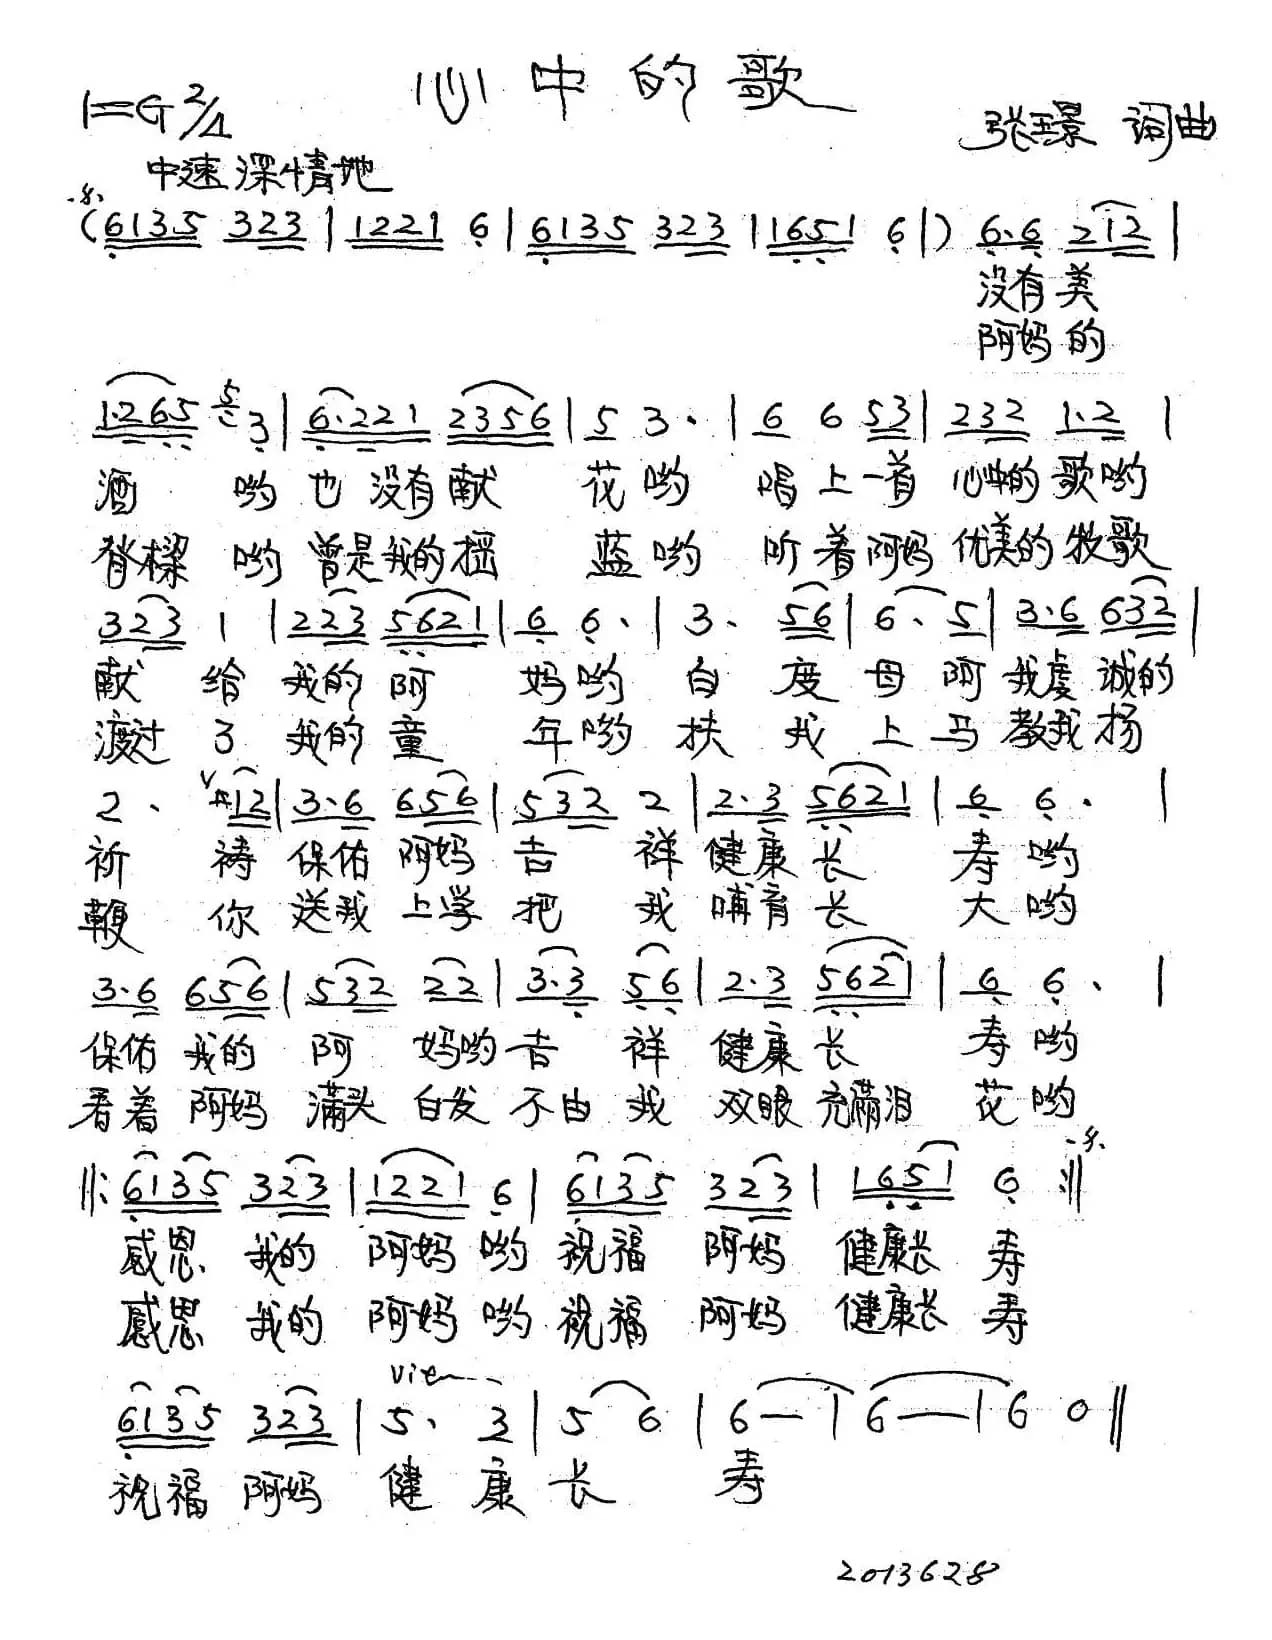 心中的歌
1=G 2/4
张璟 词曲
中速 深情地
(6135 323 | 1221 6 | 6135 323 | 1651 6 | ) 6·6 212 |
没有美
阿妈的
1·265 5 3 | 6·221 2356 | 5 3· | 6 6 53 | 232 1·2 |
酒 哟 也 没有献 花 哟 唱 上 一首 心中的 歌哟
脊樑 哟 曾是我的摇 蓝 哟 听 着 阿妈 优美的 牧歌
323 1 | 223 5621 | 6 6· | 3· 56 | 6· 5 | 3·6 632 |
献 给 我的 阿 妈哟 白 度 母 阿 我虔 诚的
渡过 了 我的 童 年哟 扶 我 上 马 教我 扬
2· V 12 | 3·6 656 | 532 2 | 2·3 5621 | 6 6· |
祈 祷 保佑 阿妈 吉 祥 健康 长 寿 哟
鞭 你 送我 上学 把 我 哺育 长 大 哟
3·6 656 | 532 22 | 3·3 56 | 2·3 5621 | 6 6· |
保佑 我的 阿 妈哟 吉 祥 健康 长 寿 哟
看着 阿妈 满头 白发 不由 我 双眼 充满泪 花 哟
‖: 6135 323 | 1221 6 | 6135 323 | 1651 6 :‖
感恩 我的 阿妈 哟 祝福 阿妈 健康长 寿
感恩 我的 阿妈 哟 祝福 阿妈 健康长 寿
6135 323 | 5· 3 | 5 6 | 6 — | 6 — | 6 0 ‖
祝福 阿妈 健 康 长 寿
2013628